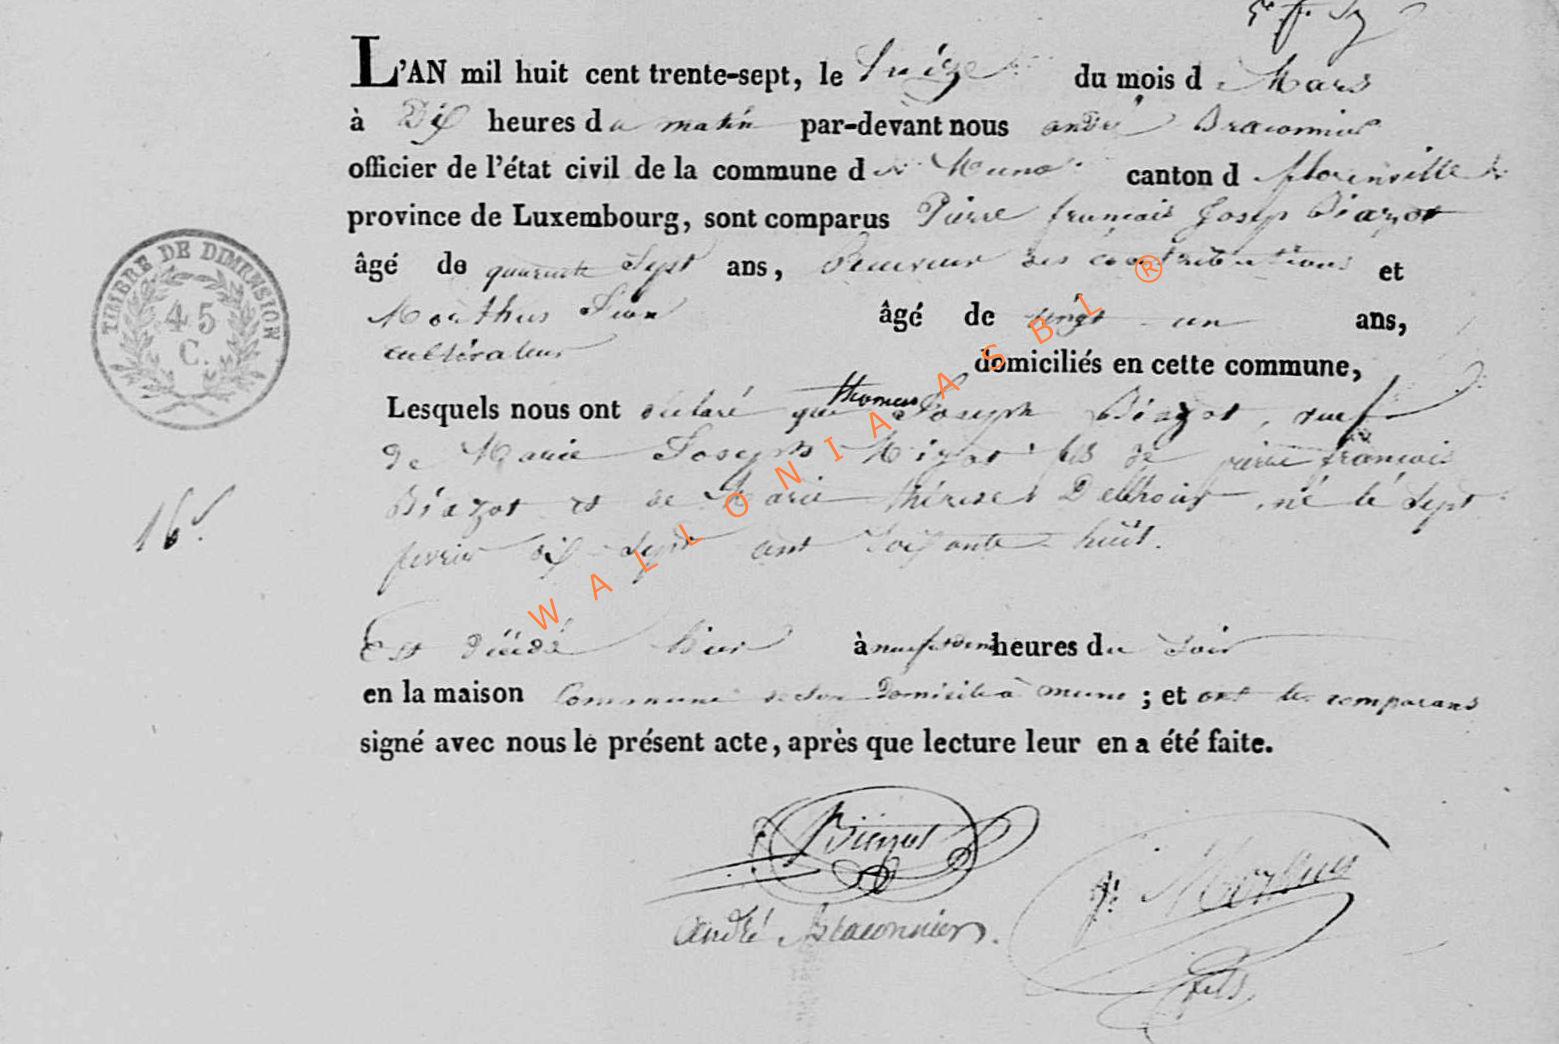 L'AN mil huit cent trente-sept, le Seize du mois d Mars
à Dix heures du matin par-devant nous andré Braconnier
officier de l'état civil de la commune de Muno canton d florenville
province de Luxembourg, sont comparus Pierre françois Josep Biazot
âgé de quarante Sept ans, Receveur des contributions et
Morthus Jean âgé de vingt un ans,
cultivateur
domiciliés en cette commune,
Lesquels nous ont déclaré que thomas Joseph Biazot, veuf
de Marie Joseph fils de pierre françois
Biazot et de Marie thérèse , né le Sept
fevrier dix-Sept cent soixante huit.
Est décédé hier à neuf et demi heures du Soir
en la maison Commune de son domicile à muno ; et ont les comparans
signé avec nous le présent acte, après que lecture leur en a été faite.
Biazot
J. Morthus
andré Braconnier
fils
TIMBRE DE DIMENSION
45
C.
16
WALLONIA ASBL ®